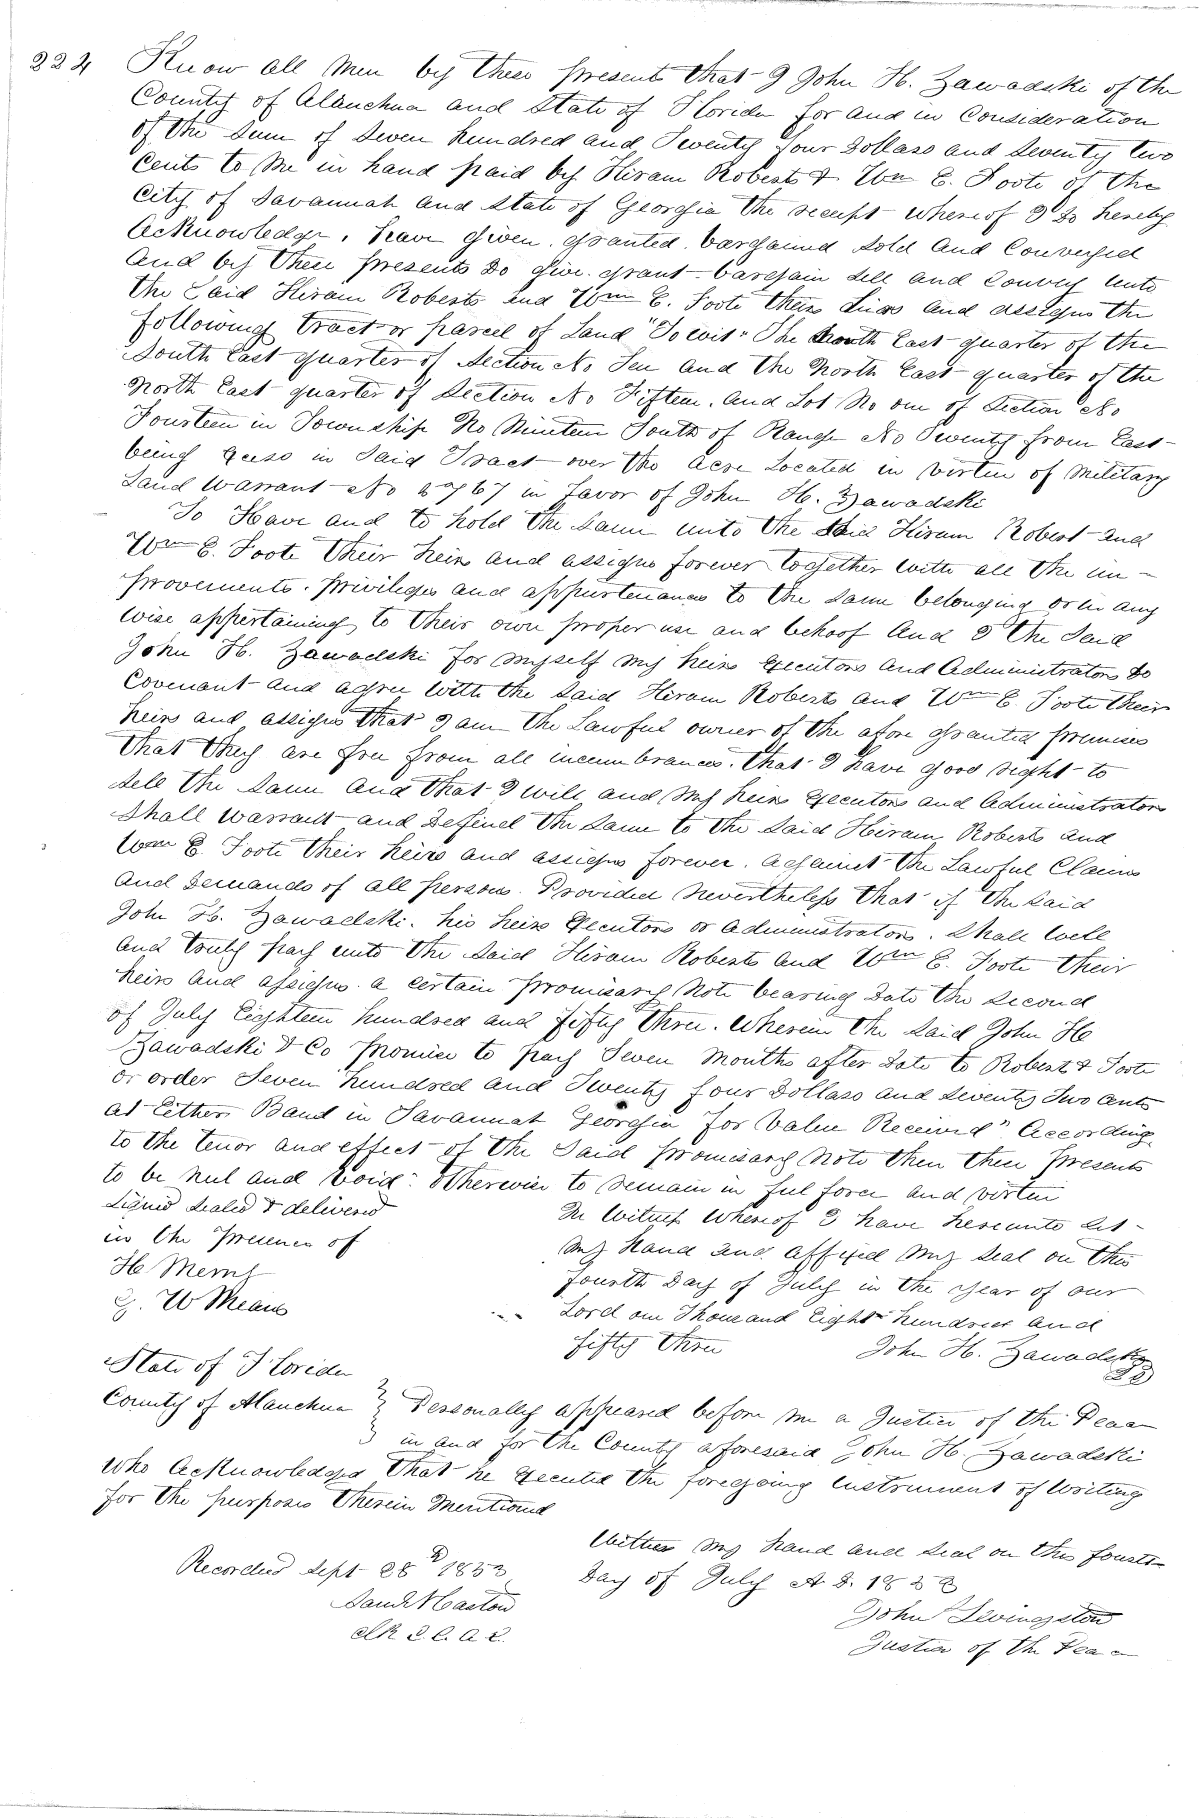 224 Know all Men by these presents that I John H. Zawadski of the
County of Alauchua and State of Florida for and in Consideration
of the Sum of Seven hundred and Twenty four Dollars and Seventy two
Cents to Me in hand paid by Hiram Roberts & Wm E. Foote of the
City of Savannah and State of Georgia the receipt whereof I do hereby
Acknowledge, have given, granted, bargained Sold and Conveyed
And by these presents Do give, grant bargain Sell and Convey unto
the Said Hiram Roberts and Wm E. Foote their heirs and assigns the
following tract or parcel of Land "To wit" The South East quarter of the
South East quarter of Section No Ten and the North East quarter of the
North East quarter of Section No Fifteen. And Lot No one of Section No
Fourteen in Township No Nineteen South of Range No Twenty from East
being in Said Tract over the Acre Located in virtue of Military
Land Warrant No 6767 in favor of John H. Zawadski
To Have and to hold the Same unto the Said Hiram Robert and
Wm E. Foote their heirs and assigns forever together with all the im-
provements. privileges and appurtenances to the Same belonging or in any
wise appertaining, to their own proper use and behoof And I the Said
John H. Zawadski for Myself my heirs Executors and Administrators do
Covenant and agree with the Said Hiram Roberts and Wm E. Foote their
heirs and assigns that I am the Lawful owner of the afore granted premises
that they are free from all incumbrances. that I have good right to
Sell the Same And that I will and My heirs Executors and Administrators
Shall Warrant and Defend the Same to the Said Hiram Roberts and
Wm E. Foote their heirs and assigns forever. against the Lawful Claims
and Demands of all persons. Provided Nevertheless that if the Said
John H. Zawadski. his heirs Executors or Administrators. Shall Well
and truly pay unto the Said Hiram Roberts and Wm E. Foote their
heirs and assigns. a certain promisary Note bearing Date the Second
of July Eighteen hundred and fifty three. Wherein the Said John H
Zawadski & Co promise to pay Seven Months after Date to Roberts & Foote
or order Seven hundred and Twenty four Dollars and Seventy Two cents
at Either Band in Savannah Georgia for Value Received" According
to the tenor and effect of the Said promisary Note then these presents
to be Nul and Void: Otherwise to remain in ful force and virtue
Signed Sealed & delivered
in the Presence of
H Mernt
G. W Means
In Witness Whereof I have hereunto Set
My hand and affixed My Seal on this
fourth Day of July in the Year of our
Lord one Thousand Eight hundred and
fifty three John H. Zawadski
State of Florida
County of Alauchua } Personally appeared before me a Justice of the Peace
in and for the County aforesaid John H. Zawadski
Who Acknowledged that he Executed the foregoing Instrument of Writing
for the purposes therein Mentioned
Witness my hand and Seal on this fourth
Day of July A D. 1853
John Livingston
Justice of the Peace
Recorded Sept 28th 1853